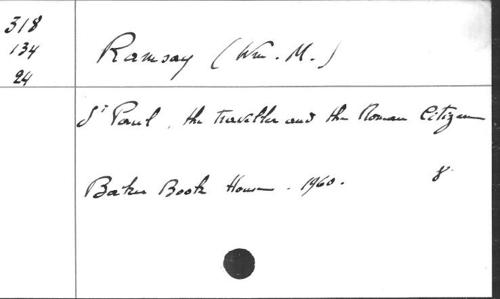 318
134
24
Ramsay (Wm. M.)
St Paul, the traveller and the Roman Citizen
Baker Book House. 1960. 8